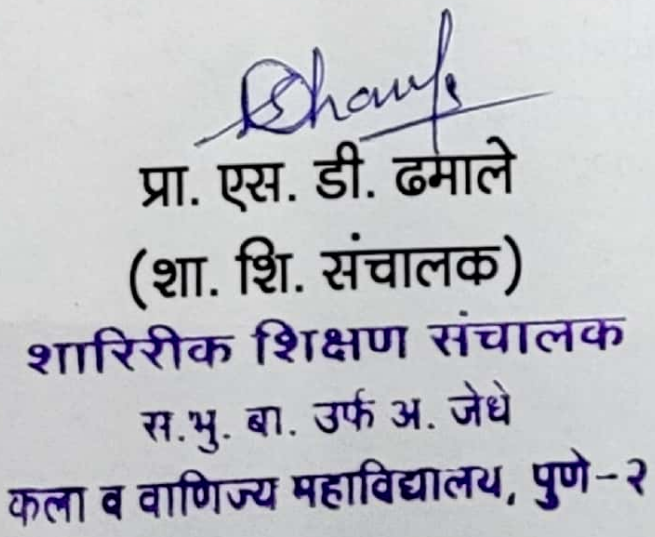 प्रा. एस. डी. ढमाले
(शा. शि. संचालक)
शारिरीक शिक्षण संचालक
स.भु. बा. उर्फ अ. जेधे
कला व वाणिज्य महाविद्यालय, पुणे-२